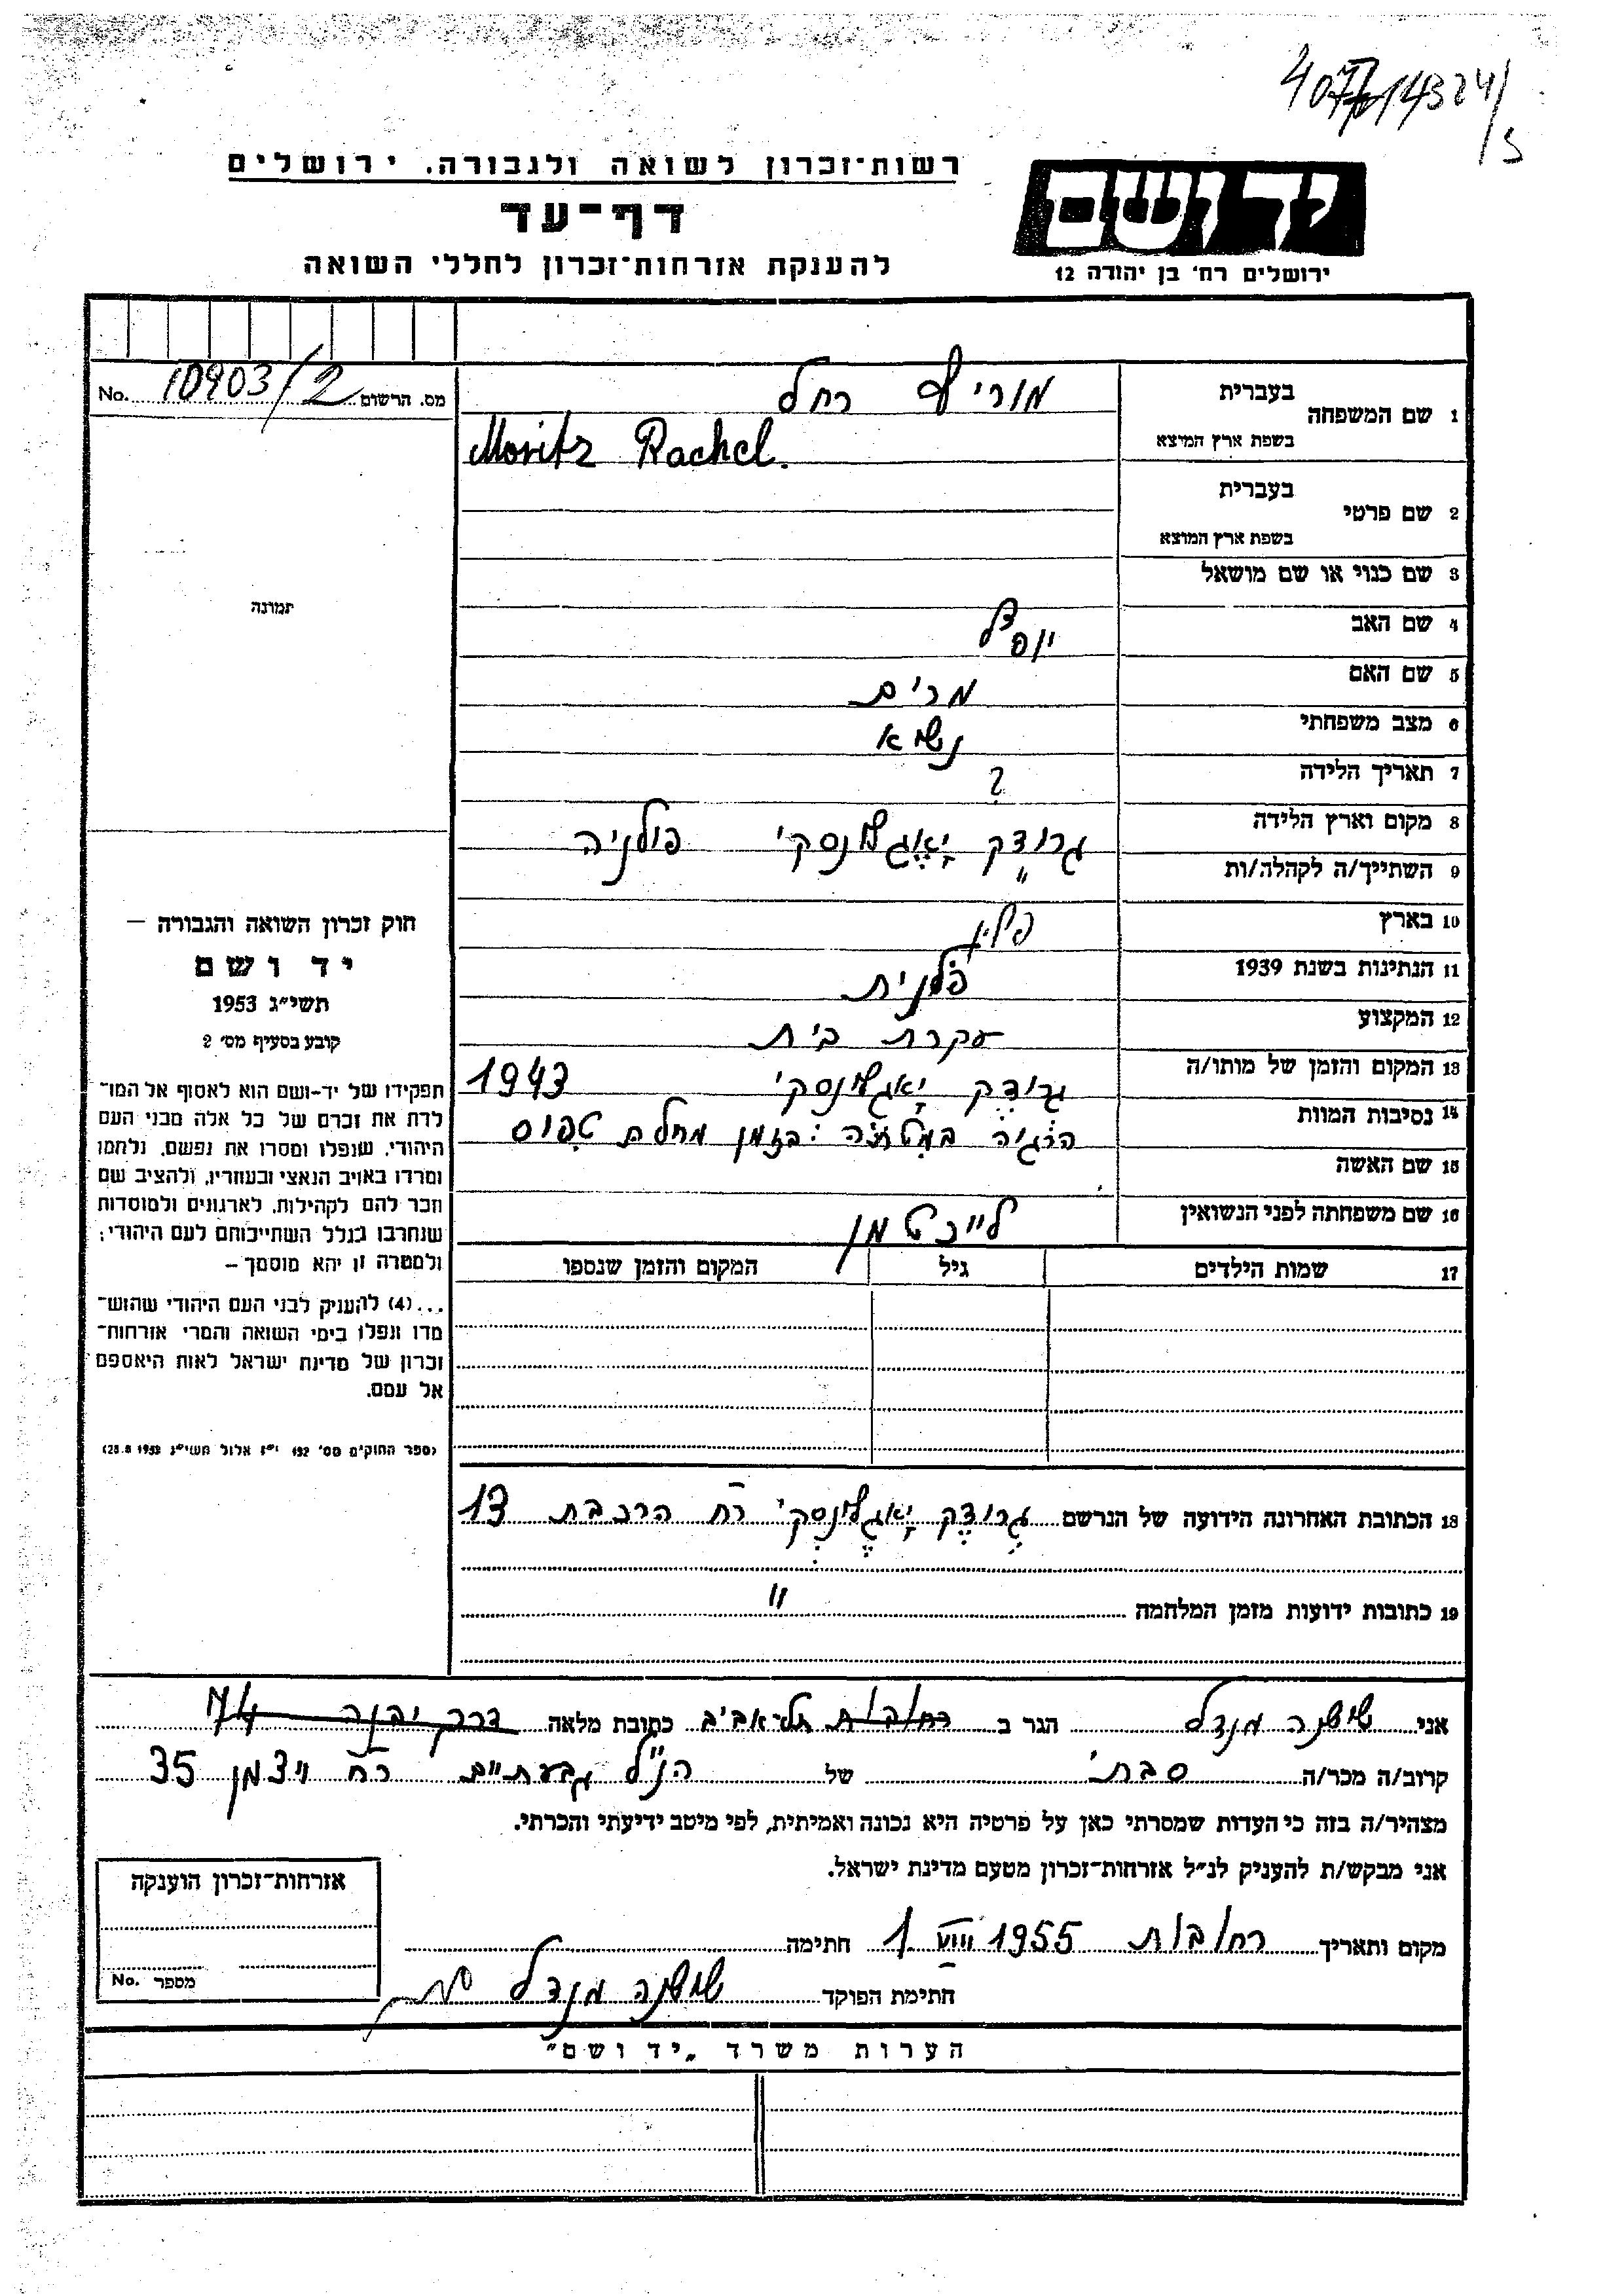 רשות־זכרון לשואה ולגבורה. ירושלים
דף-עד
להענקת אזרחות־זכרון לחללי השואה
יד ושם
ירושלים רח' בן יהודה 12
מס. הרשום 10903/2 No.
תמונה
1 שם המשפחה
בעברית מוריץ רחל
בשפת ארץ המוצא Moritz Rachel.
2 שם פרטי
בעברית
בשפת ארץ המוצא
3 שם כנוי או שם מושאל
4 שם האב
5 שם האם מרים
6 מצב משפחתי נשוא
7 תאריך הלידה ?
8 מקום וארץ הלידה גרודק יאגלונסקי פולניה
9 השתייך/ה לקהלה/ות "
10 בארץ
11 הנתינות בשנת 1939 פולנית
12 המקצוע עקרת בית
13 המקום והזמן של מותו/ה גרודק יאגלונסקי 1943
14 נסיבות המוות במיטתה בזמן מחלת טפוס
15 שם האשה
16 שם משפחתה לפני הנשואין לייכטמן
17 שמות הילדים גיל המקום והזמן שנספו
18 הכתובת האחרונה הידועה של הנרשם גרודק יאגלונסקי רח הרכבת 13
19 כתובות ידועות מזמן המלחמה "
חוק זכרון השואה והגבורה –
יד ושם
תשי"ג 1953
קובע בסעיף מס' 2
תפקידו של יד-ושם הוא לאסוף אל המו־
לדת את זכרם של כל אלה מבני העם
היהודי, שנפלו ומסרו את נפשם, נלחמו
ומרדו באויב הנאצי ובעוזריו, ולהציב שם
וזכר להם לקהילות, לארגונים ולמוסדות
שנחרבו בגלל השתייכותם לעם היהודי;
ולמטרה זו יהא מוסמך –
...(4) להעניק לבני העם היהודי שהוש־
מדו ונפלו בימי השואה והמרי אזרחות־
זכרון של מדינת ישראל לאות היאספם
אל עמם.
(ספר החוקים מס' 132 י"ז אלול תשי"ג 28.8.1953)
אני שושנה מנדל הגר ב רחובות תל-אביב כתובת מלאה דרך יבנה 74
קרוב/ה מכר/ה סבתי של הנ"ל גבעתיים רח ויצמן 35
מצהיר/ה בזה כי העדות שמסרתי כאן על פרטיה היא נכונה ואמיתית, לפי מיטב ידיעתי והכרתי.
אני מבקש/ת להעניק לנ"ל אזרחות-זכרון מטעם מדינת ישראל.
מקום ותאריך רחובות 1 VIII 1955 חתימה
חתימת הפוקד שושנה מנדל
אזרחות-זכרון הוענקה
מספר No.
הערות משרד „יד ושם"